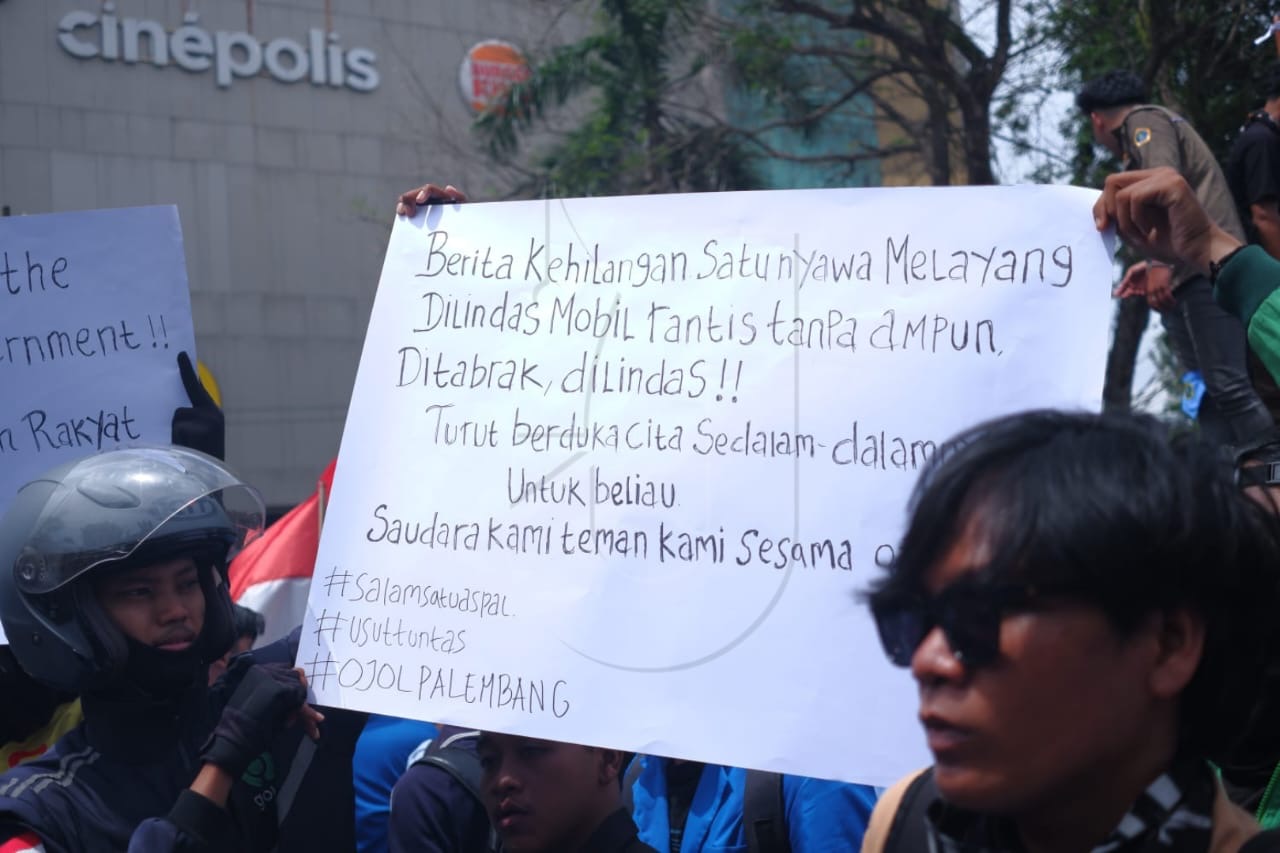 cinépolis
BURGER
KING
the
ernment !!
n Rakyat
Berita Kehilangan. Satu nyawa Melayang
Dilindas Mobil rantis tanpa ampun.
Ditabrak, dilindas !!
Turut berduka cita Sedalam-dalam
Untuk beliau.
Saudara kami teman kami sesama o
#salamsatuaspal.
#usuttuntas
#OJOLPALEMBANG